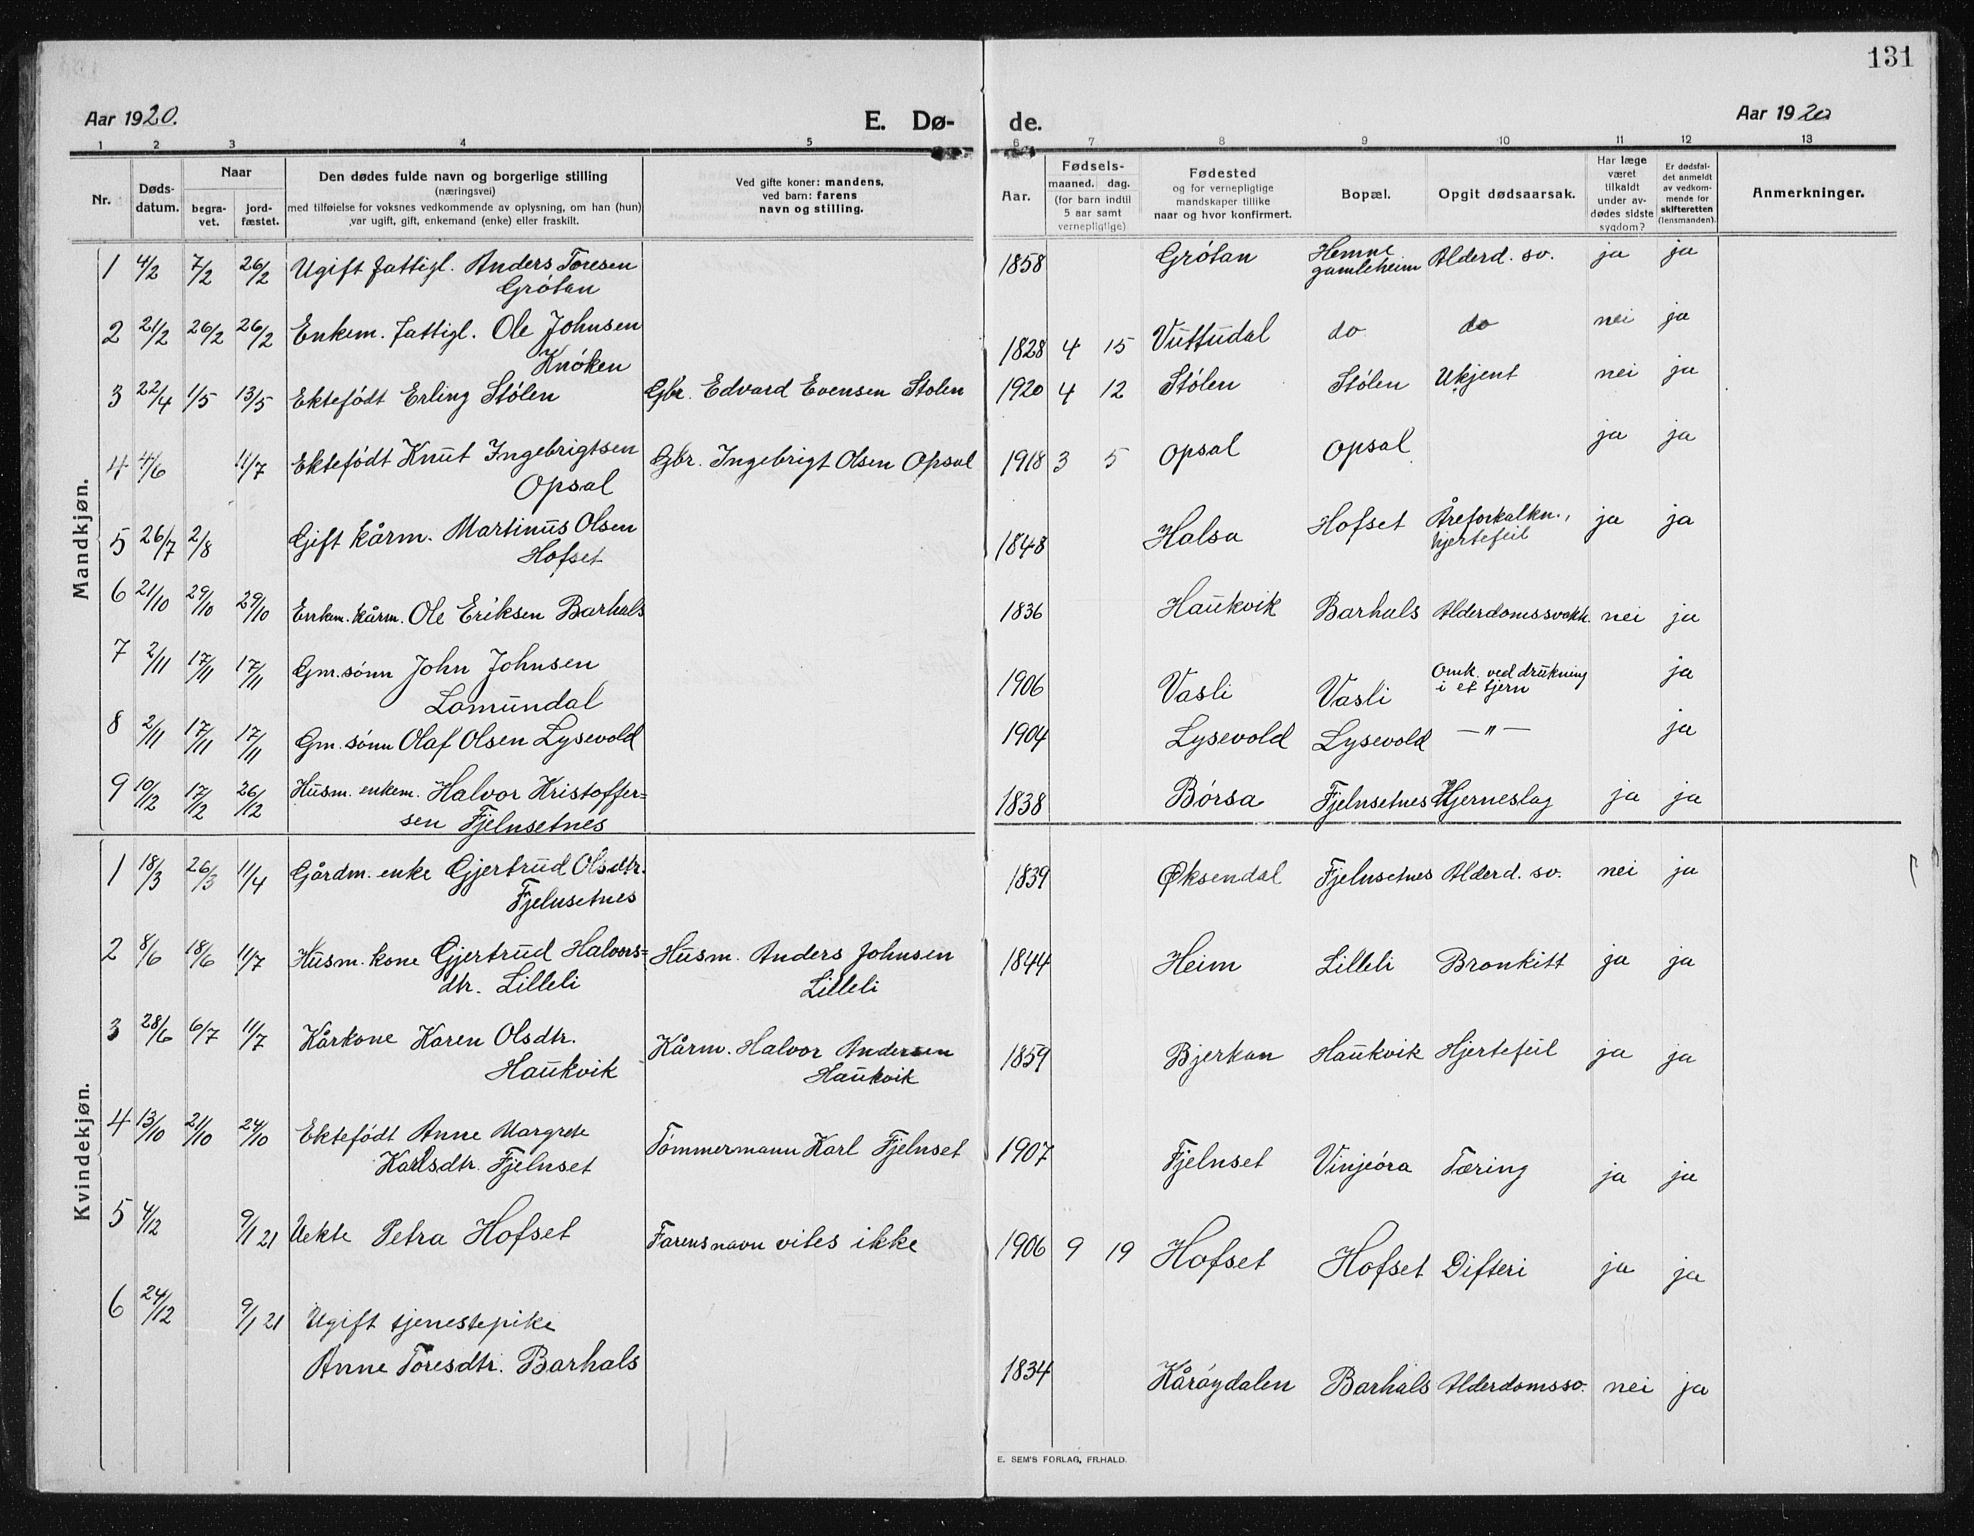 131
Aar 1920.
E. Dø-
de.
Aar 1920
1 2 3 4 5 6 7 8 9 10 11 12 13
Nr.
Døds-
datum.
Naar
begra-
vet.
jord-
fæstet.
Den dødes fulde navn og borgerlige stilling
(næringsvei)
med tilføielse for voksnes vedkommende av oplysning, om han (hun)
var ugift, gift, enkemand (enke) eller fraskilt.
Ved gifte koner: mandens,
ved barn: farens
navn og stilling.
Aar.
Fødsels-
maaned. dag.
(for barn indtil
5 aar samt
vernepligtige)
Fødested
og for vernepligtige
mandskaper tillike
naar og hvor konfirmert.
Bopæl.
Opgit dødsaarsak.
Har læge
været
tilkaldt
under av-
dødes sidste
sygdom?
Er dødsfal-
det anmeldt
av vedkom-
mende for
skifteretten
(lensmanden).
Anmerkninger.
Mandkjøn.
1 4/2 7/2 26/2 Ugift fattigl. Anders Toresen
Grótan
1858 Grótan Hemne
gamleheim Alderd. sv. ja ja
2 21/2 26/2 26/2 Enkem. fattigl. Ole Johnsen
Knóken
1828 4 15 Vuttudal do do nei ja
3 22/4 1/5 13/5 Ektefödt Erling Stólen Gbr. Edvard Evensen Stolen 1920 4 12 Stólen Stólen Ukjent nei ja
4 4/6 11/7 Ektefödt Knut Ingebrigtsen
Opsal
Gbr. Ingebrigt Olsen Opsal 1918 3 5 Opsal Opsal ja ja
5 26/7 2/8 Gift kårm. Martinus Olsen
Hofset
1848 Halsa Hofset Åreforkalkn.,
hjertefeil ja ja
6 21/10 29/10 29/10 Enkem. kårm. Ole Eriksen Barhals 1836 Haukvik Barhals Alderdomssvakh. nei ja
7 2/11 17/11 17/11 Gm. sónn John Johnsen
Lomundal
1906 Vasli Vasli Omk. ved drukning
i et tjern ja
8 2/11 17/11 17/11 Gm. sónn Olaf Olsen Lysevold 1904 Lysevold Lysevold —"— ja
9 10/12 17/12 26/12 Husm. enkem. Halvor Kristoffer=
sen Fjelnsetnes
1838 Börsa Fjelnsetnes Hjerneslag ja ja
Kvindekjøn.
1 18/3 26/3 11/4 Gårdm. enke Gjertrud Olsdtr.
Fjelnsetnes
1839 Øksendal Fjelnsetnes Alderd. sv. nei ja
2 8/6 18/6 11/7 Husm. kone Gjertrud Halvors=
dtr. Lilleli
Husm. Anders Johnsen
Lilleli
1844 Heim Lilleli Bronkitt ja ja
3 28/6 6/7 11/7 Kårkone Karen Olsdtr.
Haukvik
Kårm. Halvor Andersen
Haukvik
1859 Bjerkan Haukvik Hjertefeil ja ja
4 13/10 21/10 24/10 Ektefödt Anne Margrete
Karlsdtr. Fjelnset
Tómmermann Karl Fjelnset 1907 Fjelnset Vinjeóra Tæring ja ja
5 4/12 9/1 21 Uekte Petra Hofset Farens navn vites ikke 1906 9 19 Hofset Hofset Difteri ja ja
6 24/12 9/1 21 Ugift tjenestepike
Anne Toresdtr. Barhals
1834 Kåróydalen Barhals Alderdomssv. nei ja
E. SEM'S FORLAG, FR.HALD.